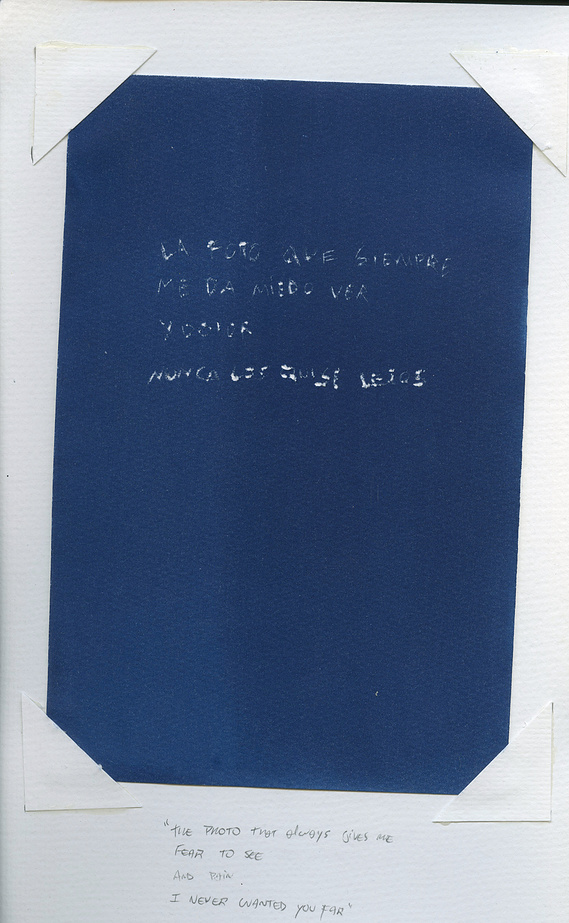 LA FOTO QUE SIEMPRE
ME DA MIEDO VER
Y DOLOR
NUNCA LES QUISE LEJOS
"THE PHOTO THAT always GIVES ME
FEAR TO SEE
AND PAIN
I NEVER WANTED YOU FAR"